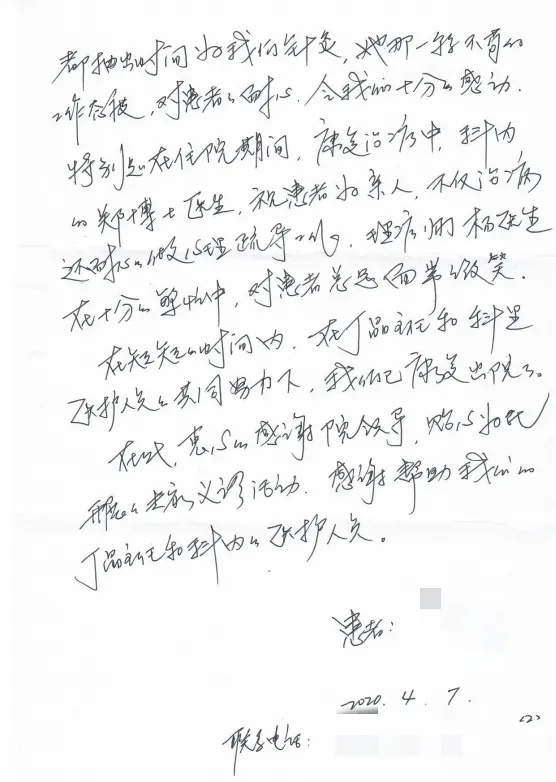 都抽出时间为我们针灸，她那一丝不苟的
工作态度，对患者的耐心，令我们十分的感动.
特别是在住院期间，康复治疗中，科内
的郑博士医生，视患者为亲人，不仅治病
还耐心的做心理疏导工作，理疗师杨医生
在十分的繁忙中，对患者总是面带微笑.
在短短的时间内，在丁晶主任和科里
医护人员的共同努力下，我们已康复出院了。
在此，衷心的感谢院领导，贴心为民
开展的 义诊活动. 感谢帮助我们的
丁晶主任和科内的医护人员。
患者：
2020. 4. 7.
(2)
联系电话：